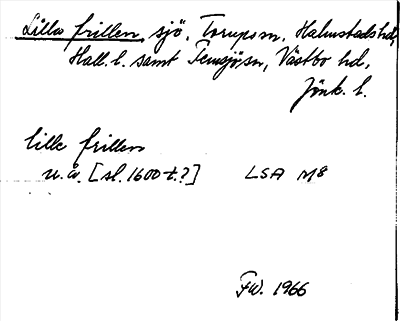 Lilla frillen, sjö, Torups sn, Halmstads hd,
Hall. l. samt Femsjö sn, Västbo hd,
Jönk. l.
lille frillen
u.å. [sl. 1600-t.?] LSA M8
FW. 1966